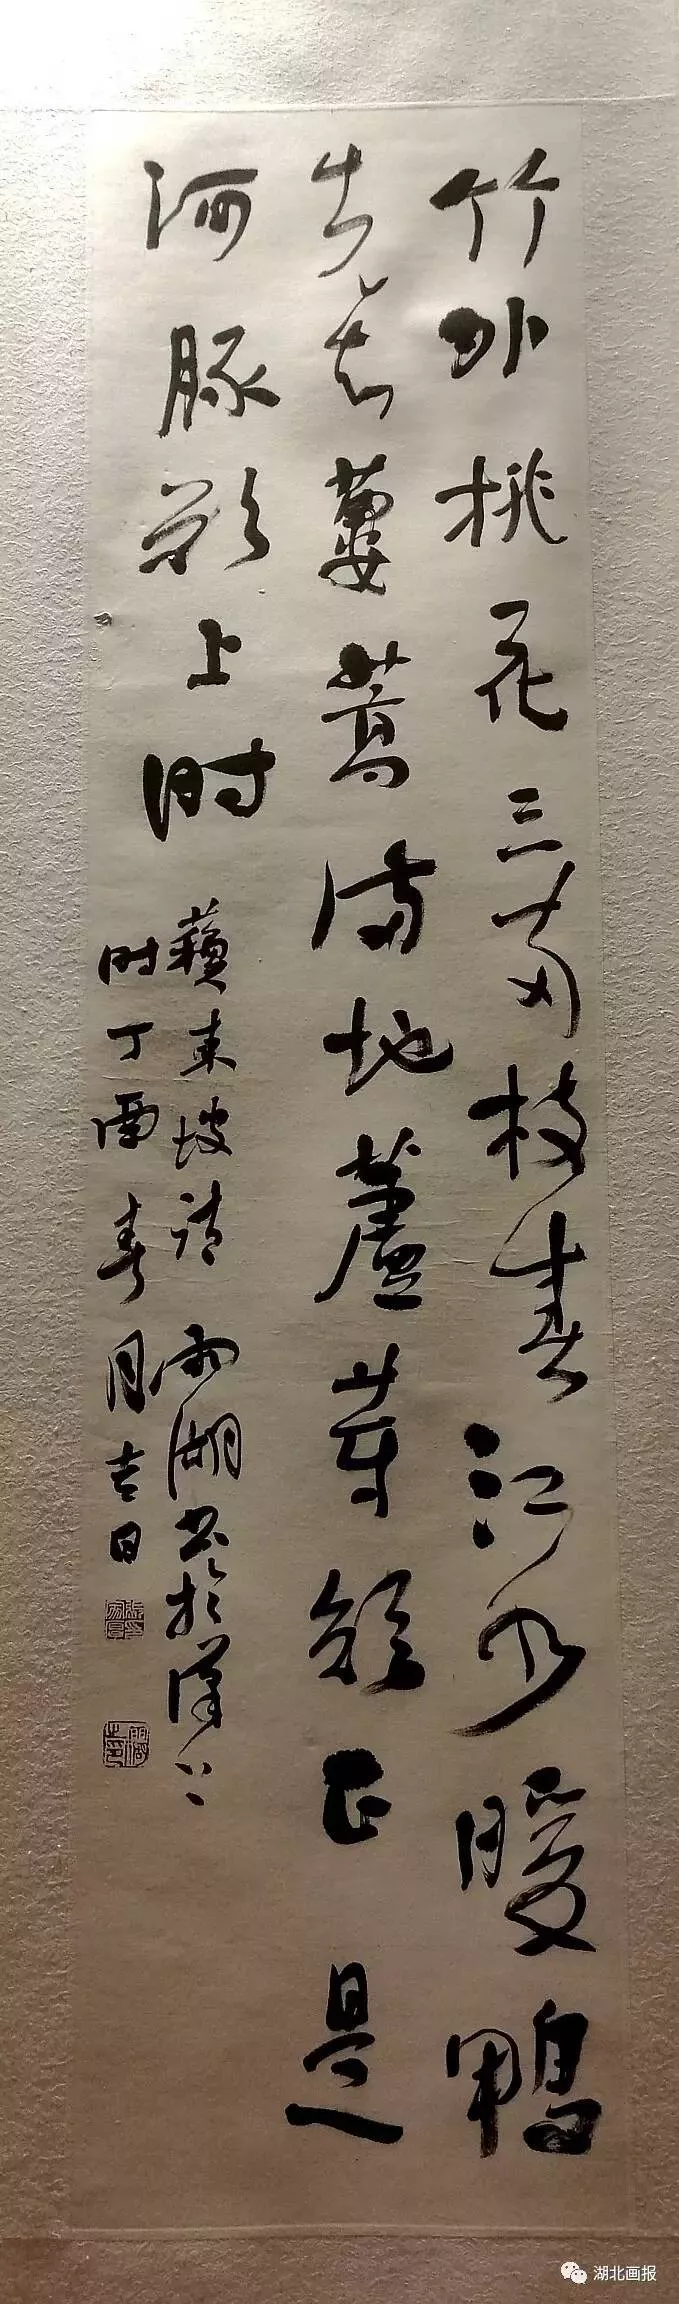 竹外桃花三两枝春江水暖鴨
先知蔞蒿满地蘆芽短正是
河豚欲上时
蘇東坡詩 雨湖书於漢上
时丁酉春月吉日
湖北画报